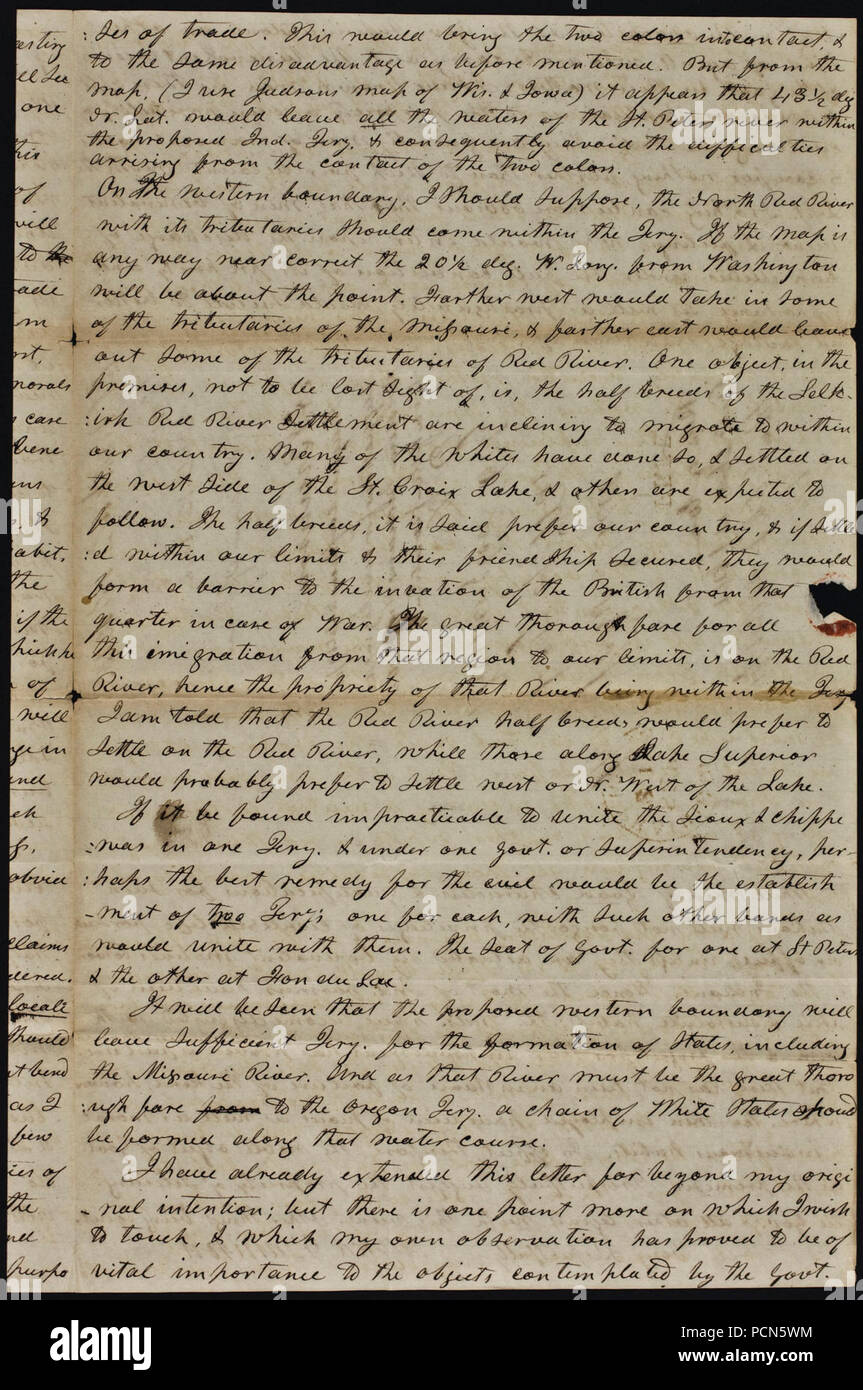 :ses of trade. This would bring the two colors in contact, &
to the same disadvantage as before mentioned. But from the
map, (I use Judsons map of Wis. & Iowa) it appears that 43 1/2 deg
Nr. Lat. would leave all the waters of the St. Peters river within
the proposed Ind. Tery. & consequently avoid the difficulties
arrising from the contact of the two colors.
On the western boundary, I should suppose, the North Red River
with its tributaries should come within the Tery. If the map is
any way near correct the 20 1/2 deg. W. Long. from Washington
will be about the point. Farther west would take in some
of the tributaries of the Missouri, & farther east would leave
out some of the tributaries of Red River. One object, in the
premises, not to be lost sight of, is, the half breeds of the Selk-
:irk Red River Settlement are inclining to migrate to within
our country. Many of the whites have done so, & settled on
the west side of the St. Croix Lake, & others are expected to
follow. The half breeds, it is said prefer our country, & if settle
:d within our limits & their friendship secured, they would
form a barrier to the invation of the British from that
quarter in case of War. The great thorough fare for all
this emigration from that region to our limits, is on the Red
River, hence the propriety of that River being within the Tery
I am told that the Red River half breeds would prefer to
settle on the Red River, whill those along Lake Superior
would probably prefer to settle west or Nr. West of the Lake.
If it be found impracticable to unite the Sioux & Chippe
:was in one Tery. & under one Govt. or Superintendency, per-
:haps the best remedy for the evil would be the establish
-ment of two Tery's one for each, with such other bands as
would unite with them. The Seat of Govt. for one at St Peters
& the other at Fon du Lac.
It will be seen that the proposed western boundary will
leave sufficient Tery. for the formation of States, including
the Missouri River. And as that River must be the great thoro
:ugh fare from to the Oregon Tery. a chain of White States should
be formed along that water course.
I have already extended this letter far beyond my origi
-nal intention; but there is one point more on which I wish
to touch, & which my own observation has proved to be of
vital importance to the objects contemplated by the Govt.
one
of
will
to the
rade
morals
case
, &
abit,
the
if the
of
will
nd
obvid
claims
dered.
locali
should
as I
few
ies of
the
nd
purpo
alamy
Image ID: PCN5WM
www.alamy.com